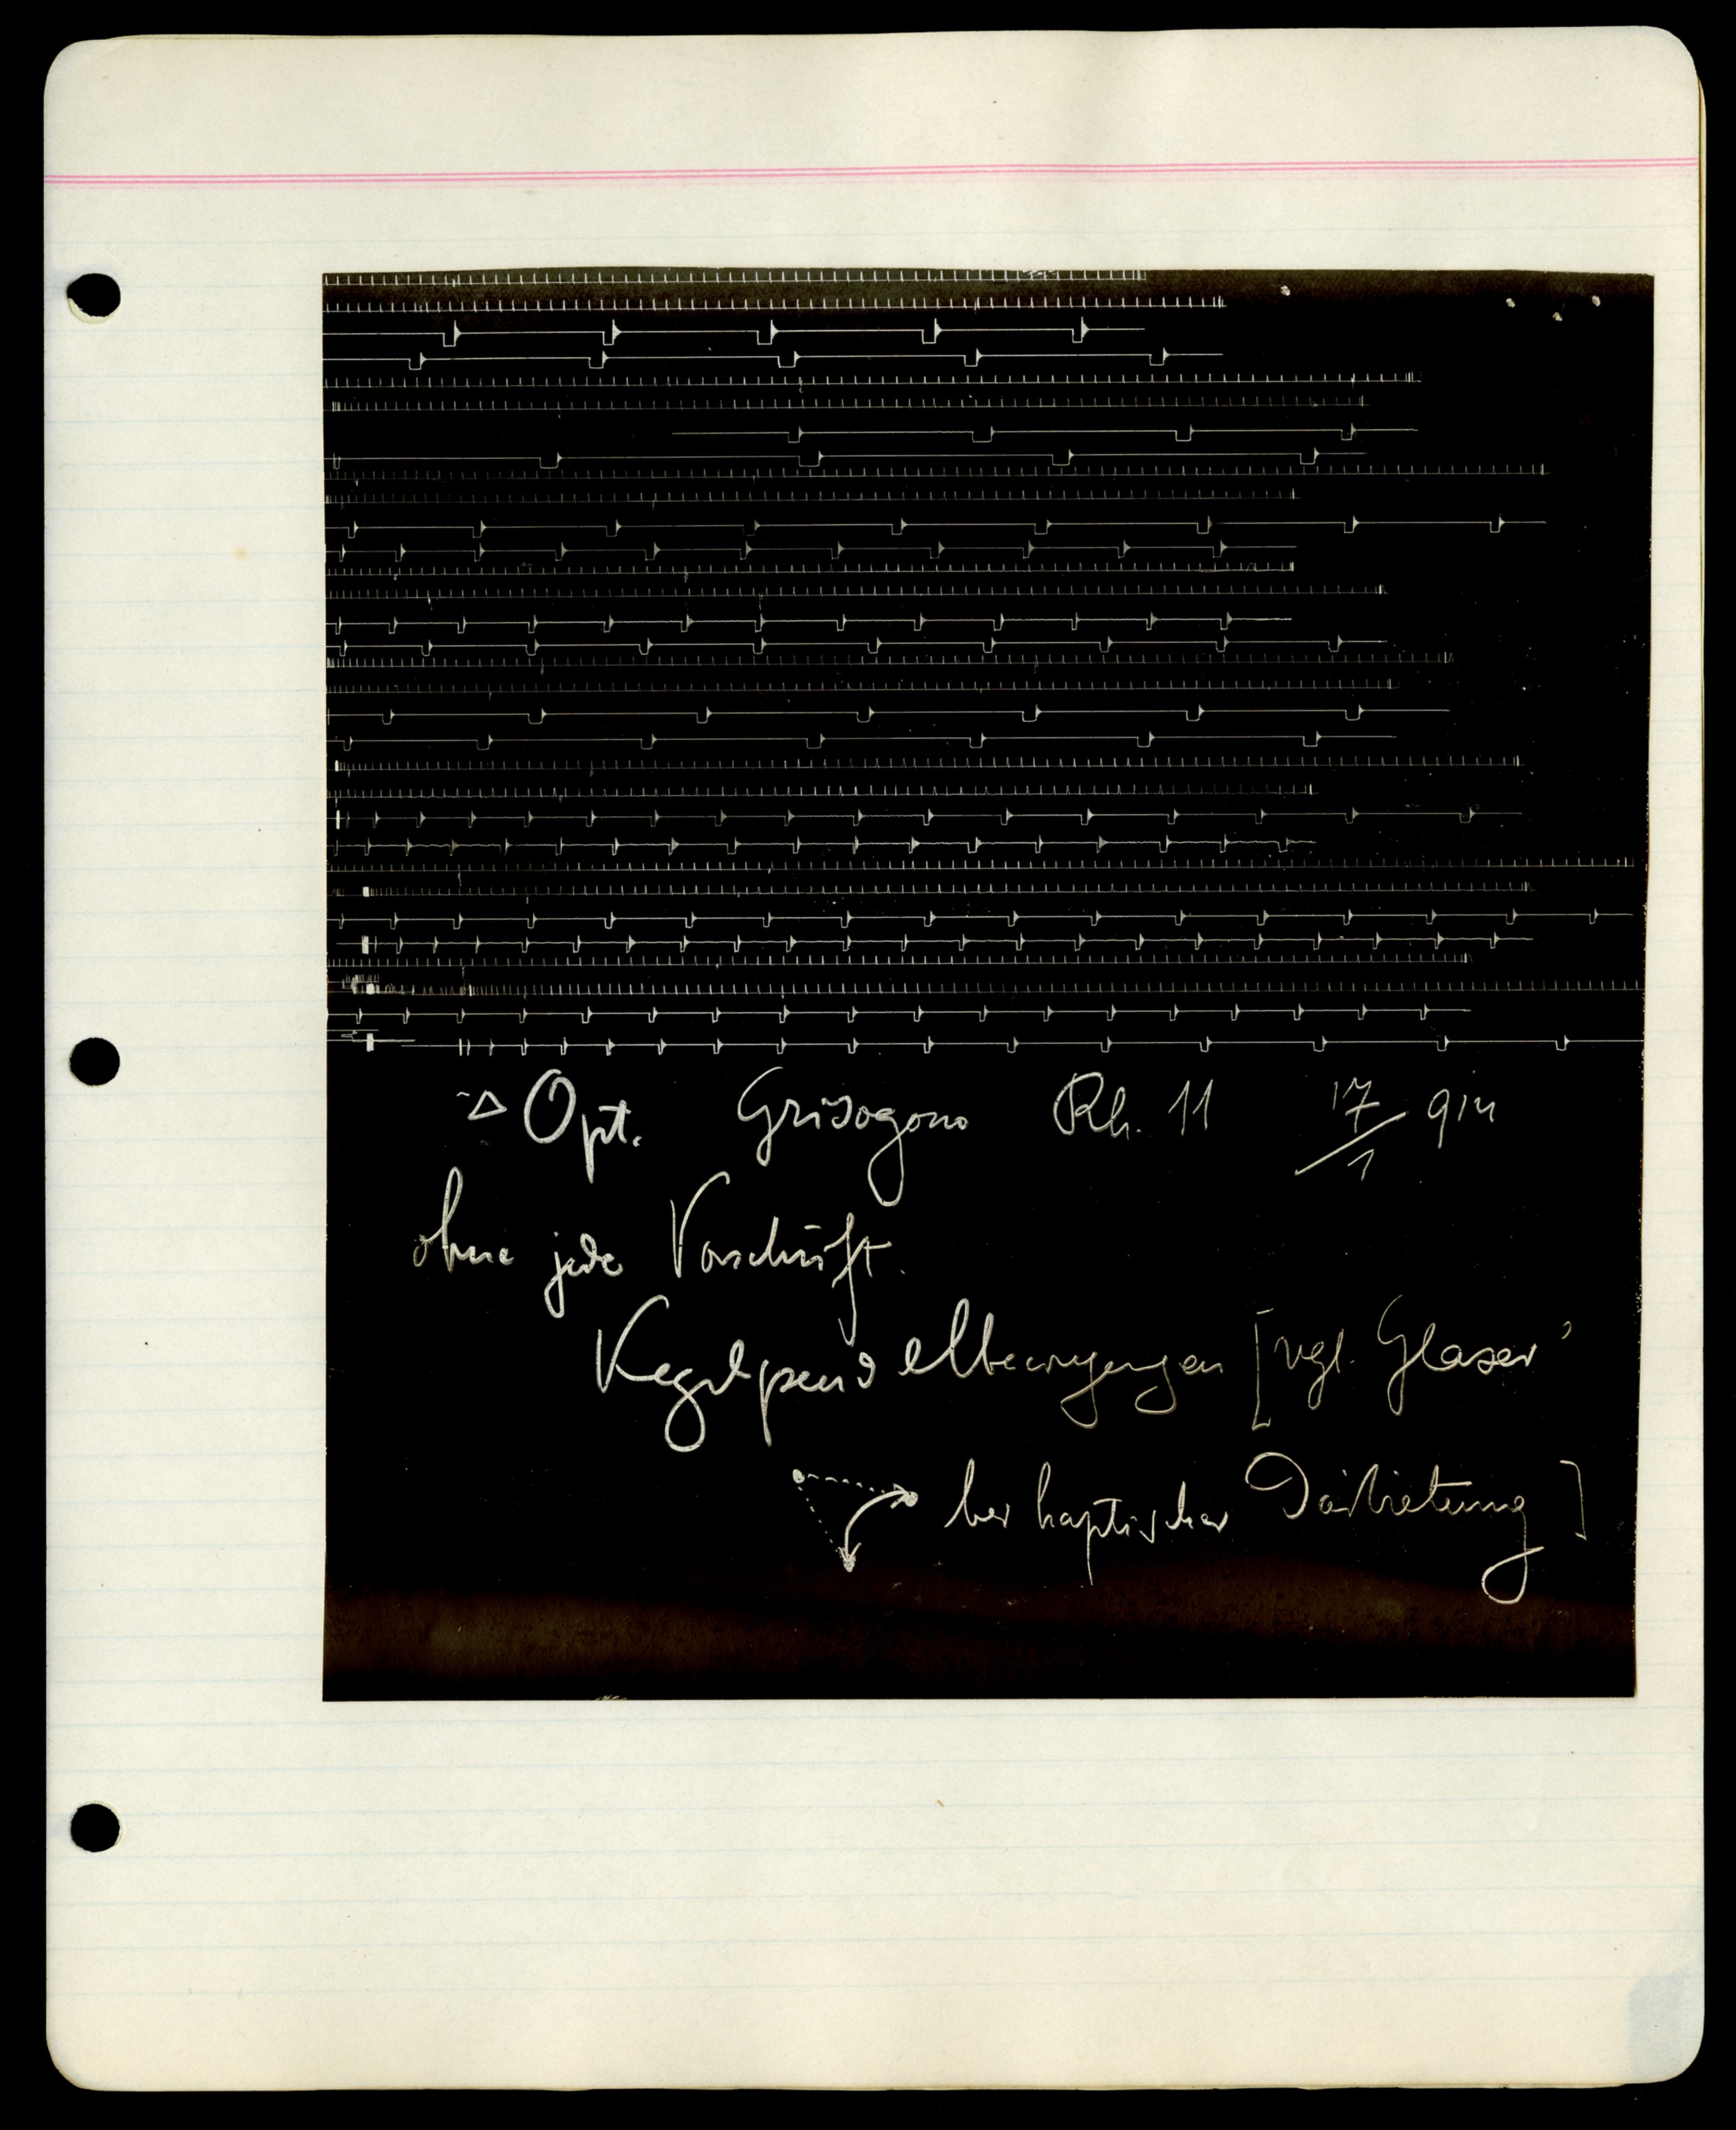 Opt. Grisogono Rh. 11 17/1 914
ohne jede Vorschrift.
Kegelpendelbewegungen [vgl. Glaser
bei haptischer Darbietung]